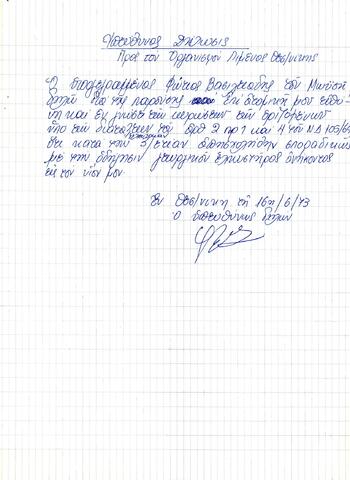 Υπεύθυνος Δήλωσις
Προς τον Οργανισμόν Λιμένος Θεσ/νίκης
Ο υπογεγραμμένος Φώτιος Βασιλειάδης του
δηλώ δια της παρούσης ατομικήν μου ευθύ-
νη και εν γνώσει των κυρώσεων των οριζομένων
υπό των διατάξεων του 2 και 4 του ΝΔ 105/69
ότι κατά την 3/ετίαν απησχολήθην σποραδικώς
με την οδήγησιν γεωργικού ελκυστήρος ανήκοντος
εις τον υιόν μου
Εν Θεσ/νίκη τη 16η/6/73
Ο υπεύθυνως δηλών